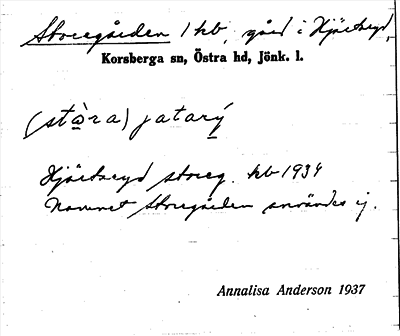 Storegården 1 kb, gård i Hjärtaryd,
Korsberga sn, Östra hd, Jönk. l.
(stòra) jatarý
Hjärtaryd storeg. kb 1934
Namnet Storegården användes ej.
Annalisa Anderson 1937